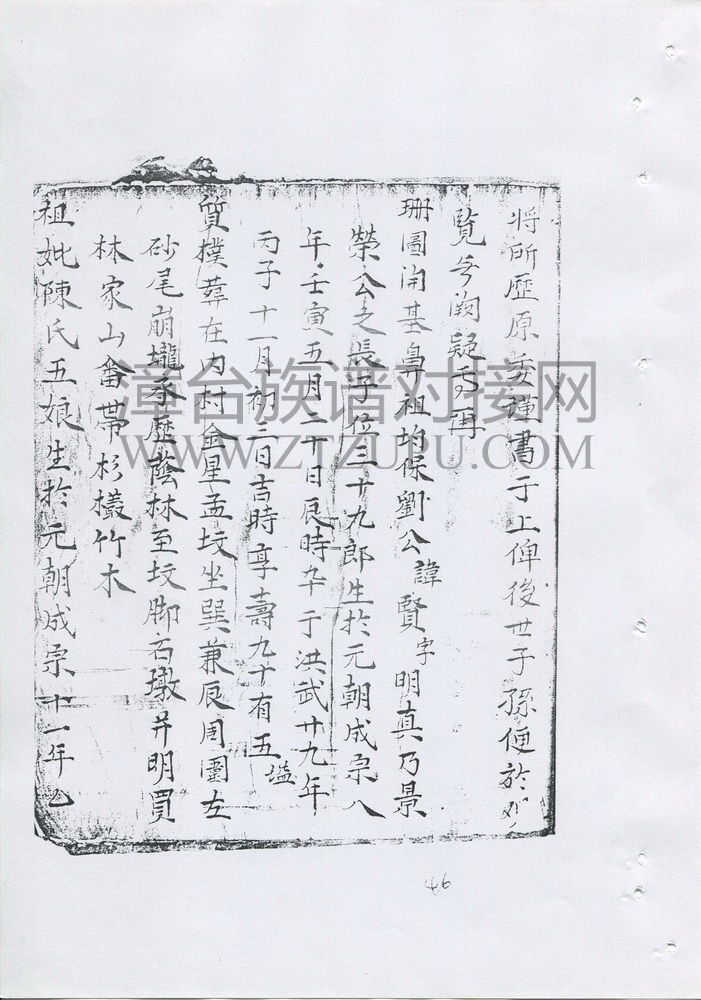 將所歷原委種書于上俾後世子孫便於
覽毋闕疑焉再
珊圖開基鼻祖均保劉公諱賢字明真乃景
榮公之長子位三十九郎生於元朝成宗八
年壬寅五月二十日辰時卒于洪武廿九年
丙子十一月初三日吉時享壽九十有五謚
質樸葬在內村金星孟坟坐巽兼辰周圍左
砂尾崩壠承歷蔭林至坟脚右墩并明買
林家山畬帶杉檨竹木
祖妣陳氏五娘生於元朝成宗十一年乙
漳台族谱对接网
WWW.ZTZUPU.COM
46